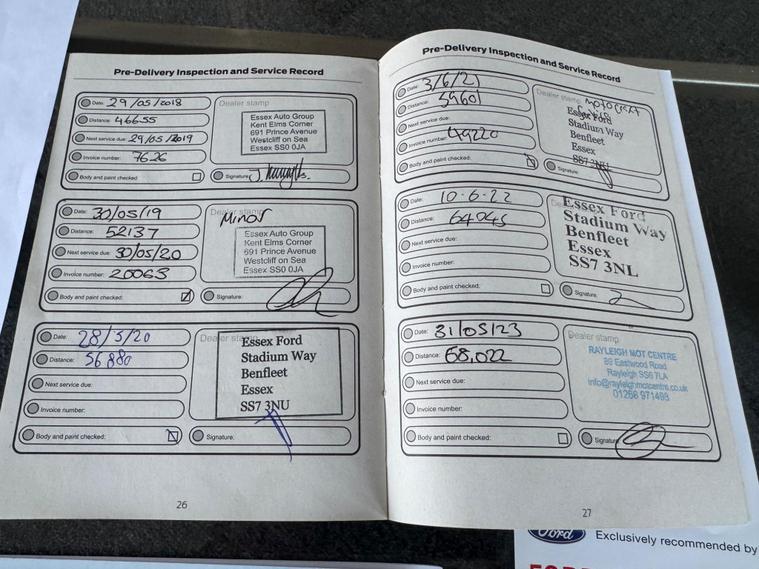 Pre-Delivery Inspection and Service Record
Date: 29/05/2018
Distance: 46655
Next service due: 29/05/2019
Invoice number: 7626
Body and paint checked:
Dealer stamp
Essex Auto Group
Kent Elms Corner
691 Prince Avenue
Westcliff on Sea
Essex SS0 0JA
Signature:
Date: 30/05/19
Distance: 52137
Next service due: 30/05/20
Invoice number: 20063
Body and paint checked:
Dealer stamp
Minor
Essex Auto Group
Kent Elms Corner
691 Prince Avenue
Westcliff on Sea
Essex SS0 0JA
Signature:
Date: 28/5/20
Distance: 56880
Next service due:
Invoice number:
Body and paint checked:
Dealer stamp
Essex Ford
Stadium Way
Benfleet
Essex
SS7 3NU
Signature:
26
Pre-Delivery Inspection and Service Record
Date: 3/6/21
Distance: 59601
Next service due:
Invoice number: 49220
Body and paint checked:
Dealer stamp
Essex Ford
Stadium Way
Benfleet
Essex
SS7 3NU
Signature:
Date: 10-6-22
Distance: 64045
Next service due:
Invoice number:
Body and paint checked:
Essex Ford
Stadium Way
Benfleet
Essex
SS7 3NL
Signature:
Date: 31/05/23
Distance: 68,022
Next service due:
Invoice number:
Body and paint checked:
Dealer stamp
RAYLEIGH MOT CENTRE
89 Eastwood Road
Rayleigh SS6 7LA
info@rayleighmotcentre.co.uk
01268 971498
Signature
27
Ford
Exclusively recommended by